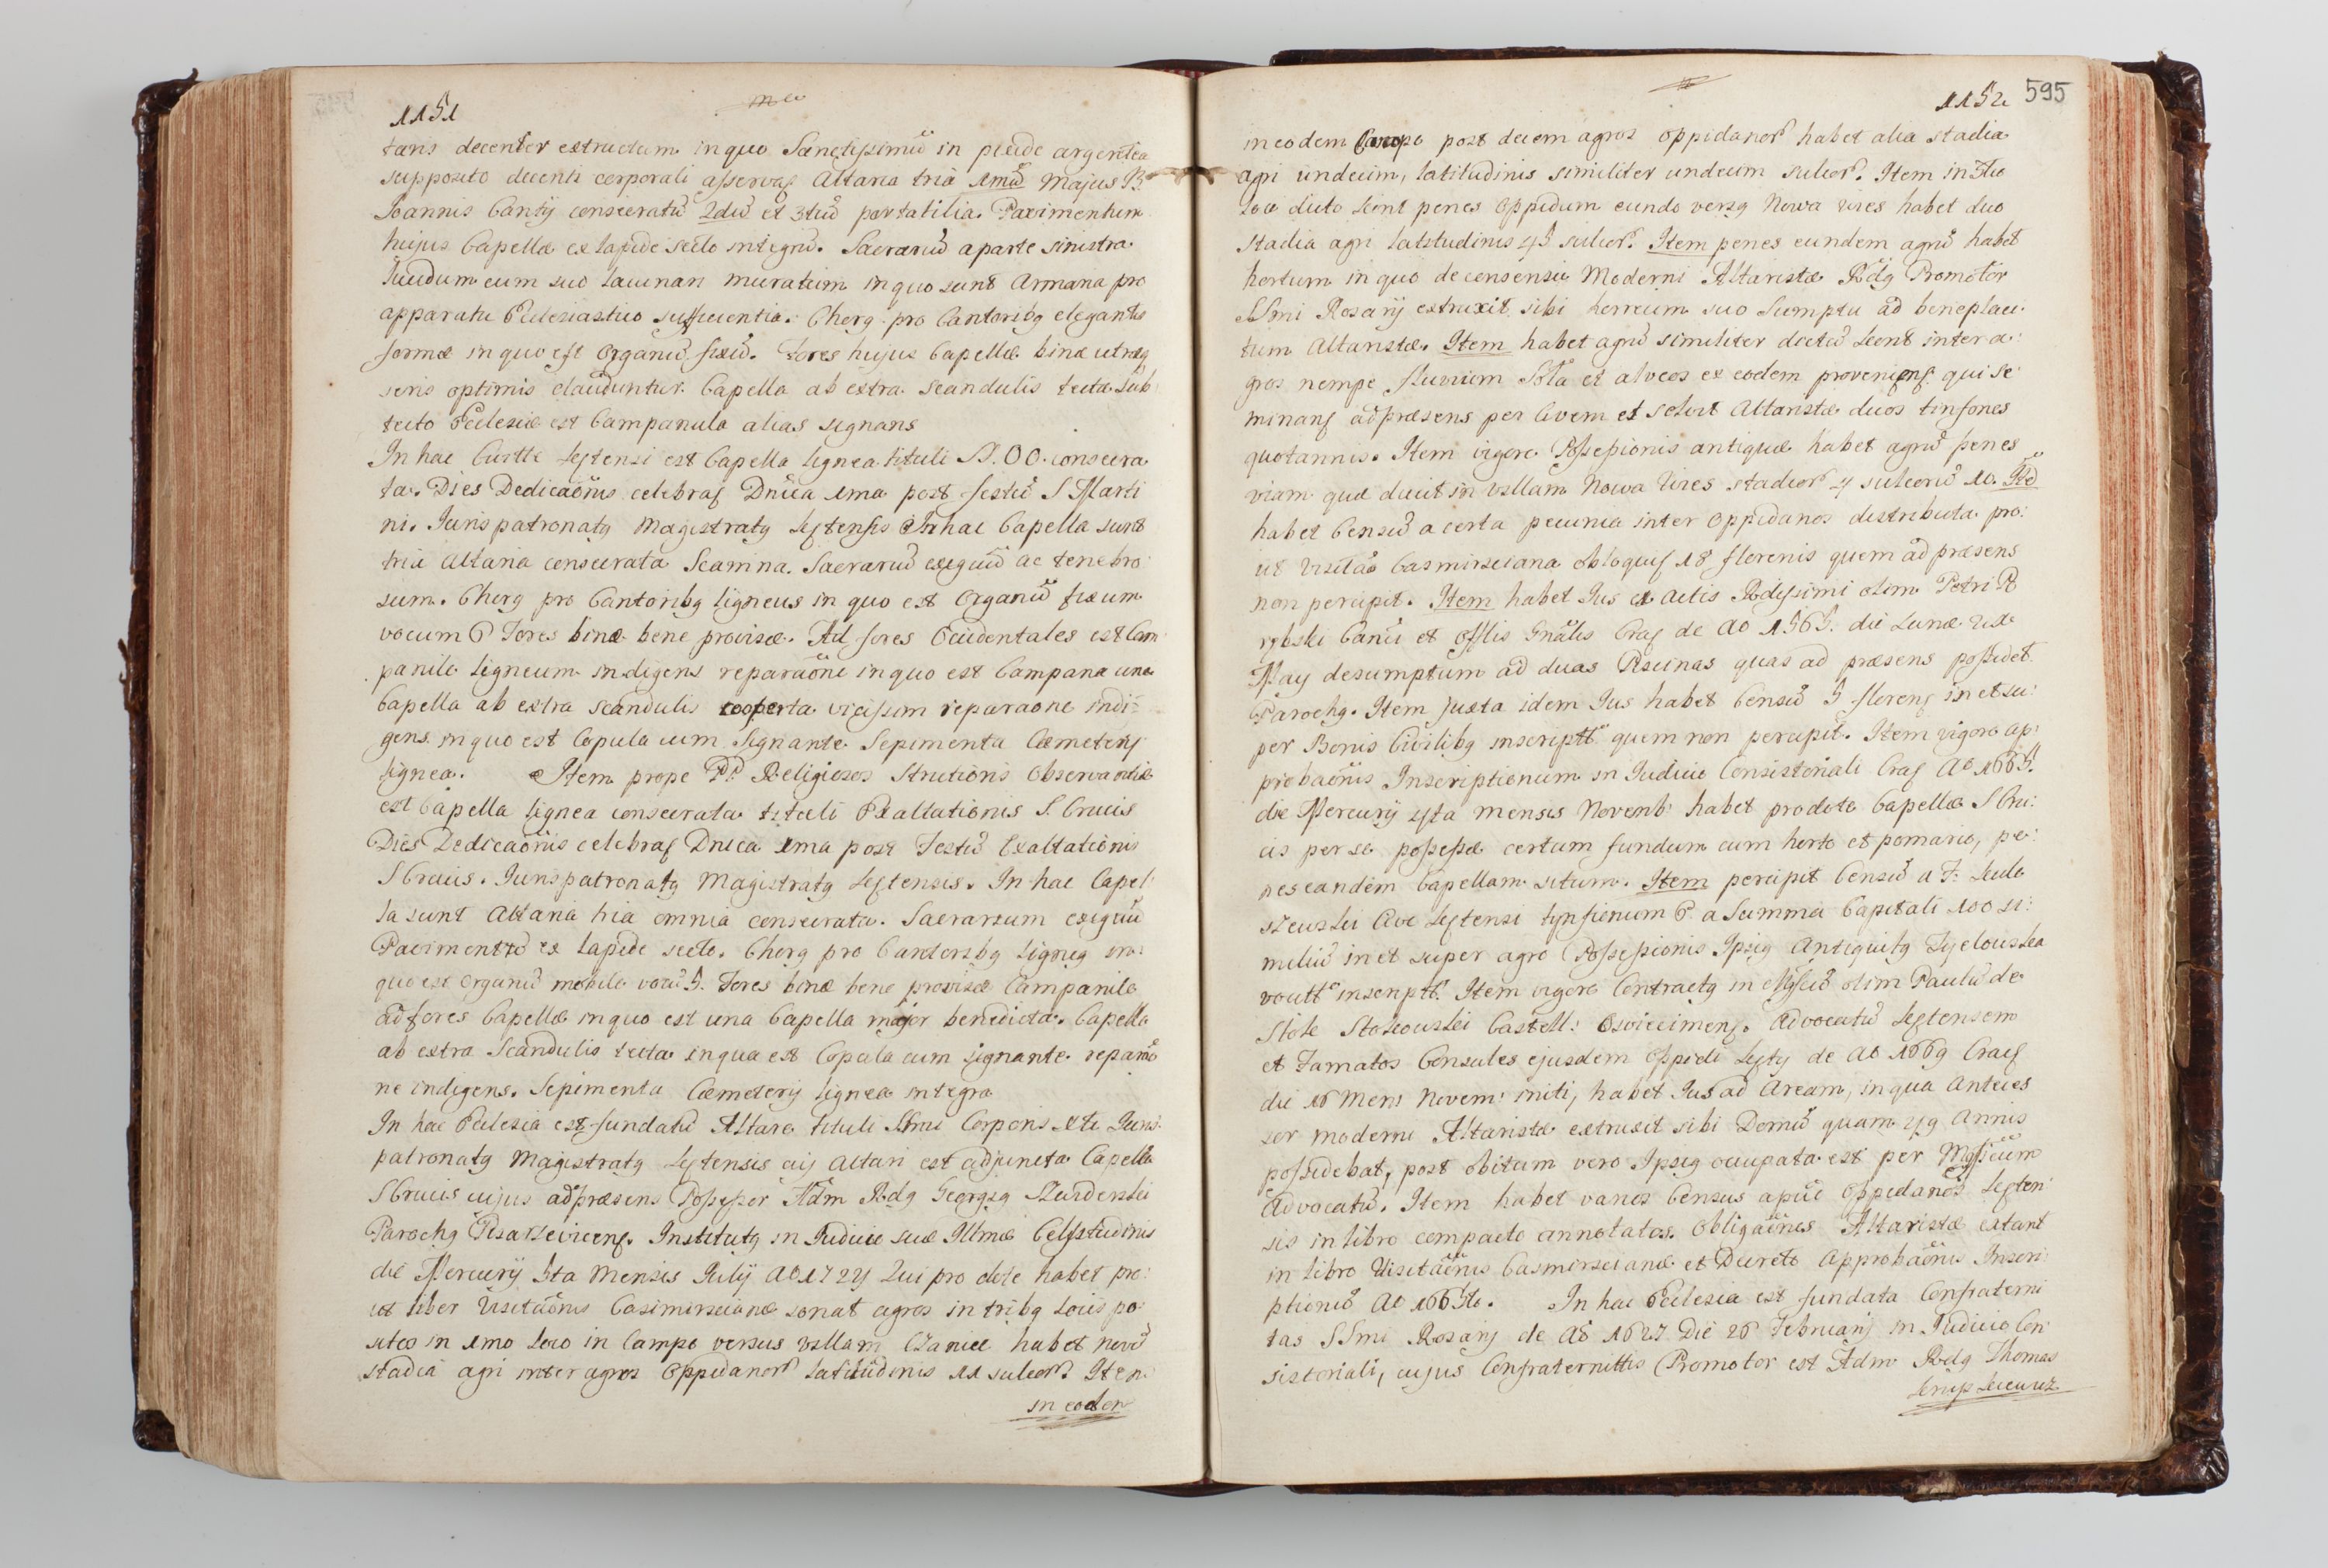 1151
tans decenter extructum in quo Sanctissimũ in pixide argentea
supposito decenti corporali asservaꝭ Altaria tria 1mũ Majus B.
Joannis Cantij consecratũ 2dũ et 3tiũ portatilia. Pavimentum
hujus Capellæ ex lapide secto integrũ. Sacrariũ a parte sinistra
cum suo lacunari muratum in quo sunt Armaria pro
apparatu Ecclesiastico sufficientia. Chorꝯ pro Cantoribꝯ elegantis
formæ in quo est Organũ fixũ. Fores hujus Capellæ binæ utræqꝫ
seris optimis clauduntur. Capella ab extra scandulis tecta sub
tecto Ecclesiæ est Campanula alias signans
In hac Ciuitte est Capella lignea tituli S.S. O O. consecra
ta. Dies Dedicaõnis celebraꝭ Dnĩca 1ma post festũ S Marti
ni. Juris patronatꝯ Magistratꝯ In hac Capella sunt
tria Altaria consecrata Scamna. Sacrariũ exiguũ ac tenebro
sum. Chorꝯ pro Cantoribꝯ ligneus in quo est Organũ fixum
vocum 6 Fores binæ bene provisæ. Ad fores Occidentales est Cam
panile ligneum indigens reparaõne in quo est Campana una
Capella ab extra scandulis cooperta vicissim reparaõne indi
gens in quo est Copula cum Signante. Sepimenta Cæmeterij
lignea. Item prope P.P. Religiosos Strictioris Observantiæ
est Capella lignea consecrata tituli Exaltationis S. Crucis
Dies Dedicaõnis celebraꝭ Dnica 1ma post Festũ Exaltationis
S Crucis. Juris patronatꝯ Magistratꝯ. In hac Capel
la sunt Altaria tria omnia consecrata. Sacrarium exiguũ
Pavimentũ ex lapide secto. Chorꝯ pro Cantoribꝯ ligneꝯ in
quo est Organũ mobile vocũ 5. Fores binæ bene provisæ Campanile
ad fores Capellæ in quo est una Capella major benedicta. Capella
ab extra Scandulis tecta in qua est Copula cum signante reparao
ne indigens. Sepimenta Cæmeterij lignea integra
In hac Ecclesia est fundatũ Altare tituli SSmi Corporis Xti Juris
patronatꝯ Magistratꝯ cuj Altari est adjuncta Capella
S Crucis cujus ad præsens Possessor Adm Rdꝯ Georgiꝯ
Parochꝯ Institutꝯ in Judicio suæ Illmæ Celsitudinis
die Mercurij 5ta Mensis Julij Ao 1724 Qui pro dote habet pro
ut liber Visitaõnis Casimirscianæ sonat agros in tribꝯ locis po
sitos in 1mo loco in Campo versus villam Czaniec habet novẽ
stadia agri inter agros Oppidanorꝫ latitudinis 11 sulcorꝫ Item
in eodem
1152 595
in eodem Campo post decem agros oppidanorꝫ habet alia stadia
agri undecim, latitudinis similiter undecim sulcorꝫ. Item in 3tio
loco dicto penes Oppidum eundo versꝯ Nowa wies habet duo
stadia agri latitudinis 45 sulcorꝫ. Item penes eundem agrũ habet
hortum in quo de consensu Moderni Altaristæ Rdꝯ Promotor
SSmi Rosarij extruxit sibi horreum suo Sumptu ad beneplaci
tum Altaristæ. Item habet agrũ similiter dictũ inter a
gros nempe fluvium Sola et alveos ex eodem proveniens qui se
minaꝭ ad præsens per Civem et solvit Altaristæ duos tinfones
quotannis. Item vigore Possessionis antiquæ habet agrũ penes
viam quæ ducit in villam Nowa Wies stadiorꝫ 4 sulcorũ 10. Itẽ
habet Censũ a certa pecunia inter Oppidanos distributa pro
ut visitao Casimirsciana 18 florenis quem ad præsens
non percipit. Item habet Jus ex actis Rdissimi olim Petri R
Canci et Offlis Gnalis Craꝭ de Ao 1565 die Lunæ
May desumptum ad duas Piscinas quas ad præsens possidet
Parochꝯ. Item juxta idem Jus habet Censũ 5 florenꝭ in et su
per Bonis Civilibꝯ inscriptũ quem non percipit. Item vigore ap
probaõnis Inscriptionum in Judicio Consistoriali Craꝭ Ao 1665.
die Mercurij 4ta mensis Novemb: habet pro dote Capellæ S Cru
cis per se possessæ certum fundum cum horto et pomario, pe
nes eandem Capellam situm. Item percipit Censũ a F.
tynfionum 6. a Summa Capitali 100 si
miliũ in et super agro Possessionis Ipsiꝯ Antiquitꝯ
inscriptũ. Item vigore Contractꝯ in olim Paulũ de
Castell: Osviecimens. Advocatũ
et Famatos Consules ejusdem Oppidi de Ao 1669 Craꝭ
die 16 Mens Novem: initi, habet Jus ad Aream, in qua Anteces
sor moderni Altaristæ extruxit sibi Domũ quam 49 Annis
possidebat, post obitum vero Ipsiꝯ occupata est per Mgficum
Advocatũ. Item habet varios Census apud Oppidanos
in libro compacto annotatos. Obligaõnes Altaristæ extant
in libro Visitaõnis Casimirscianæ et Decreto Approbaõnis Inscri
ptionũ Ao 1665to. In hac Ecclesia est fundata Confraterni
tas SSmi Rosarij de Ao 1627 Die 26 Februarij in Judicio Con
sistoriali, cujus Confraternittis Promotor est Adm Rdꝯ Thomas